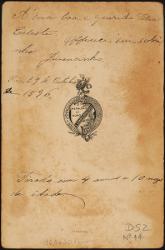 A' sua boa e querida Tia
Celeste offerece seu sobri
nho Juvencinho
Rio 29 de Outubro
de 1896.
Tirado com 4 annos e 10 mezes
de idade
DS2
Nº 44